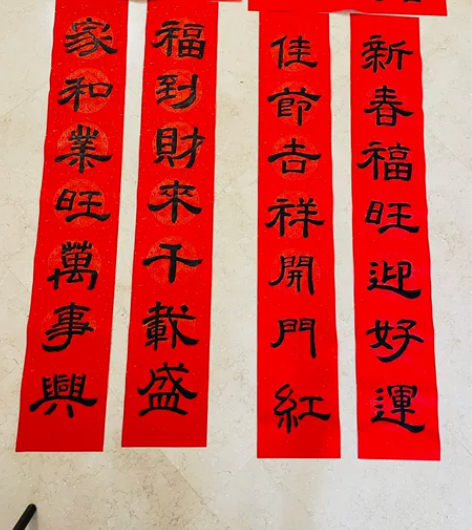 新春福旺迎好運
佳節吉祥開門紅
福到財來千載盛
家和業旺萬事興